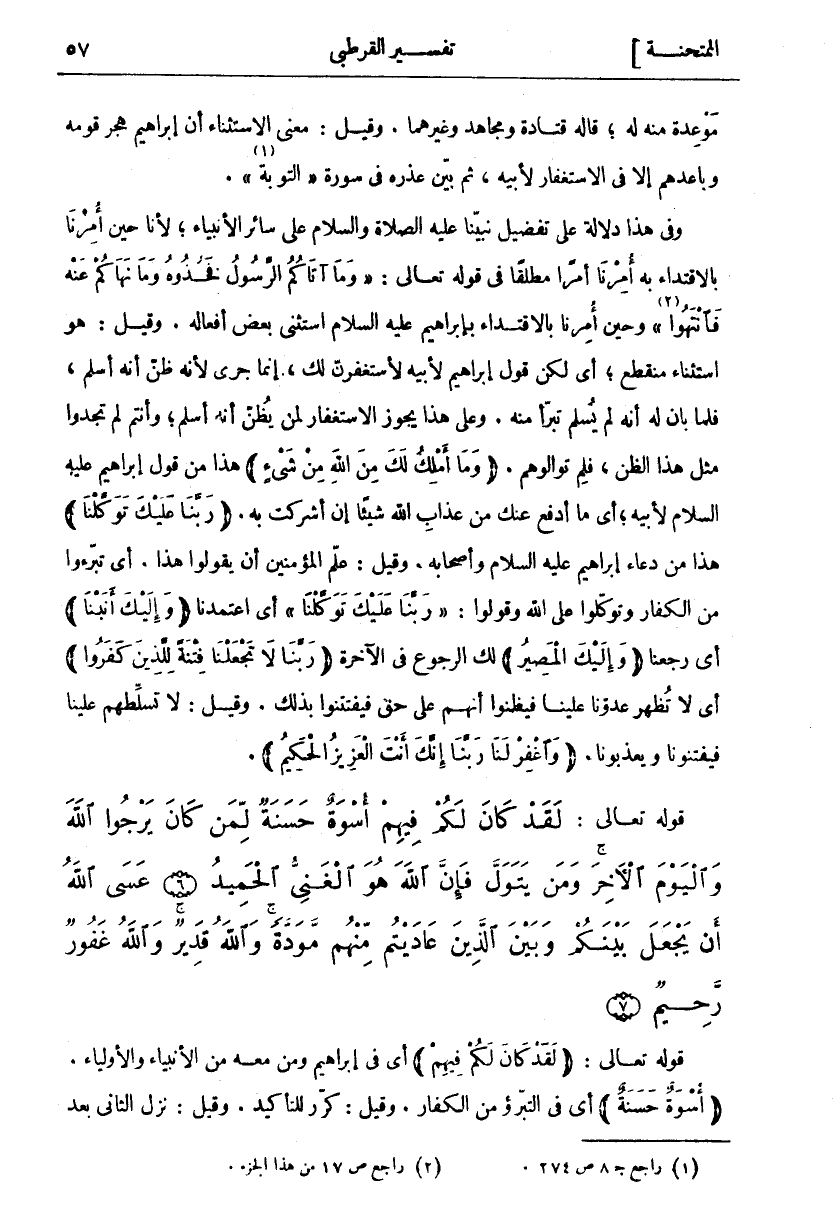 الممتحنـــة ] تفســـير القرطبى ٥٧
مَوْعِدة منه له ؛ قاله قتـادة ومجاهد وغيرهما . وقيـل : معنى الاستثناء أن إبراهيم هجر قومه
وباعدهم إلا فى الاستغفار لأبيه ، ثم بيّن عذره فى سورة « التوبة (١) » .
وفى هذا دلالة على تفضيل نبيّنا عليه الصلاة والسلام على سائر الأنبياء ؛ لأنا حين أُمِرْنَا
بالاقتداء به أُمِرْنَا أمرًا مطلقًا فى قوله تعـالى : « وَمَا آتَاكُمُ الرَّسُولُ فَخُذُوهُ وَمَا نَهَاكُمْ عَنْهُ
فَٱنْتَهُوا (٢) » وحين أُمِرنا بالاقتـداء بإبراهيم عليه السلام استثنى بعض أفعاله . وقيـل : هو
استثناء منقطع ؛ أى لكن قول إبراهيم لأبيه لأستغفرنّ لك ، إنما جرى لأنه ظنّ أنه أسلم ،
فلما بان له أنه لم يُسلم تبرّأ منه . وعلى هذا يجوز الاستغفار لمن يُظَنّ أنه أسلم ؛ وأنتم لم تجدوا
مثل هذا الظن ، فلِم توالوهم . ﴿ وَمَا أَمْلِكُ لَكَ مِنَ اللهِ مِنْ شَىْءٍ ﴾ هذا من قول إبراهيم عليه
السلام لأبيه ؛ أى ما أدفع عنك من عذاب الله شيئًا إن أشركت به . ﴿ رَبَّنَا عَلَيْكَ تَوَكَّلْنَا ﴾
هذا من دعاء إبراهيم عليه السلام وأصحابه . وقيل : علّم المؤمنين أن يقولوا هذا . أى تبرّءوا
من الكفار وتوكّلوا على الله وقولوا : « رَبَّنَا عَلَيْكَ تَوَكَّلْنَا » أى اعتمدنا ﴿ وَإِلَيْكَ أَنَبْنَا ﴾
أى رجعنا ﴿ وَإِلَيْكَ الْمَصِيرُ ﴾ لك الرجوع فى الآخرة ﴿ رَبَّنَا لَا تَجْعَلْنَا فِتْنَةً لِلَّذِينَ كَفَرُوا ﴾
أى لا تُظهر عدوّنا علينـا فيظنوا أنهـم على حق فيفتتنوا بذلك . وقيـل : لا تسلّطهم علينا
فيفتنونا ويعذبونا . ﴿ وَٱغْفِرْ لَنَا رَبَّنَا إِنَّكَ أَنْتَ الْعَزِيزُ الْحَكِيمُ ﴾ .
قوله تعـالى : لَقَدْ كَانَ لَكُمْ فِيهِمْ أُسْوَةٌ حَسَنَةٌ لِّمَن كَانَ يَرْجُوا ٱللَّهَ
وَٱلْيَوْمَ ٱلْأَخِرَ ۚ وَمَن يَتَوَلَّ فَإِنَّ ٱللَّهَ هُوَ ٱلْغَنِيُّ ٱلْحَمِيدُ ۝٦ عَسَى ٱللَّهُ
أَن يَجْعَلَ بَيْنَكُمْ وَبَيْنَ ٱلَّذِينَ عَادَيْتُم مِّنْهُم مَّوَدَّةً ۚ وَٱللَّهُ قَدِيرٌ ۚ وَٱللَّهُ غَفُورٌ
رَّحِيمٌ ۝٧
قوله تعـالى : ﴿ لَقَدْ كَانَ لَكُمْ فِيهِمْ ﴾ أى فى إبراهيم ومن معـه من الأنبياء والأولياء .
﴿ أُسْوَةٌ حَسَنَةٌ ﴾ أى فى التبرّؤ من الكفار . وقيل : كرّر للتأكيد . وقيل : نزل الثانى بعد
(١) راجع جـ ٨ ص ٢٧٤ . (٢) راجع ص ١٧ من هذا الجزء .